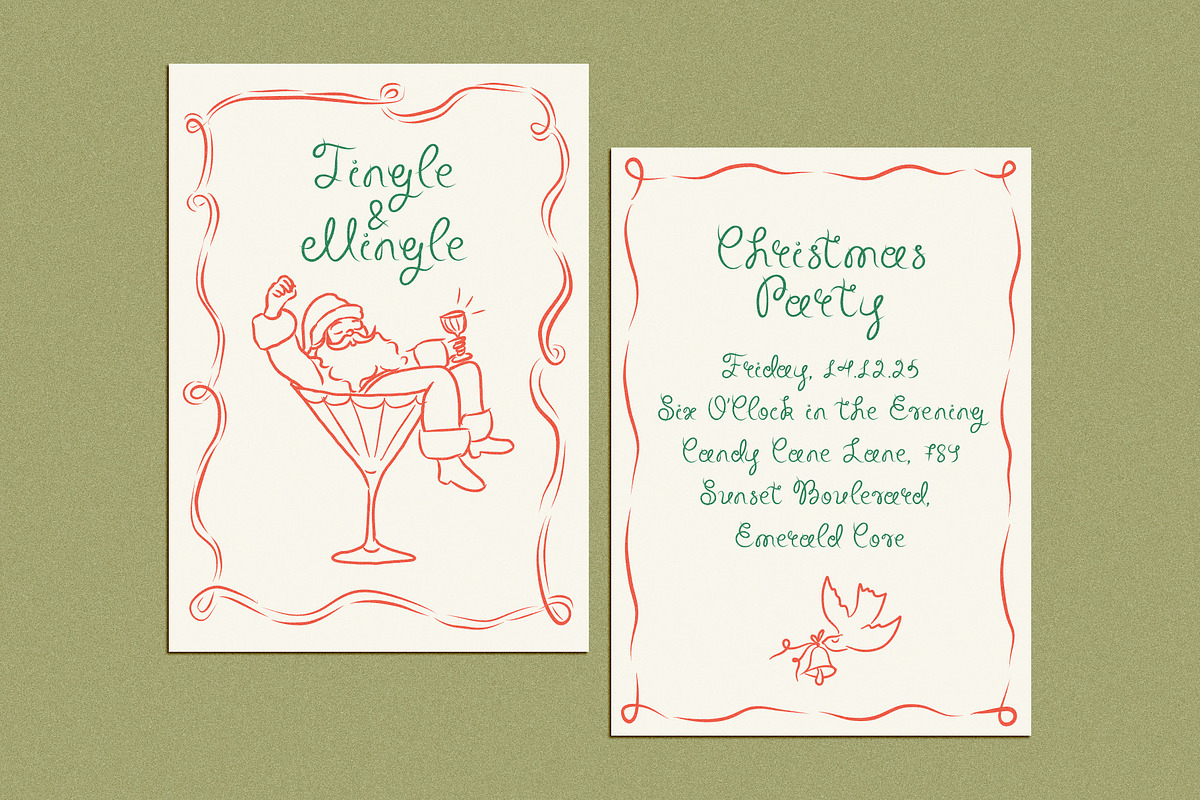 Jingle
&
Mingle
Christmas
Party
Friday, 14.12.25
Six O'Clock in the Evening
Candy Cane Lane, 789
Sunset Boulevard,
Emerald Cove